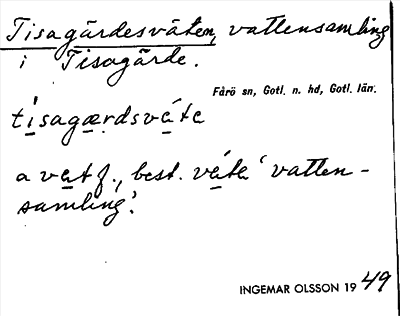 Tisagärdesväten, vattensamling
i Tisagärde.
Fårö sn, Gotl. n. hd, Gotl. län.
tisagærdsväte
a vät f., best. väta 'vatten-
samling'.
INGEMAR OLSSON 1949